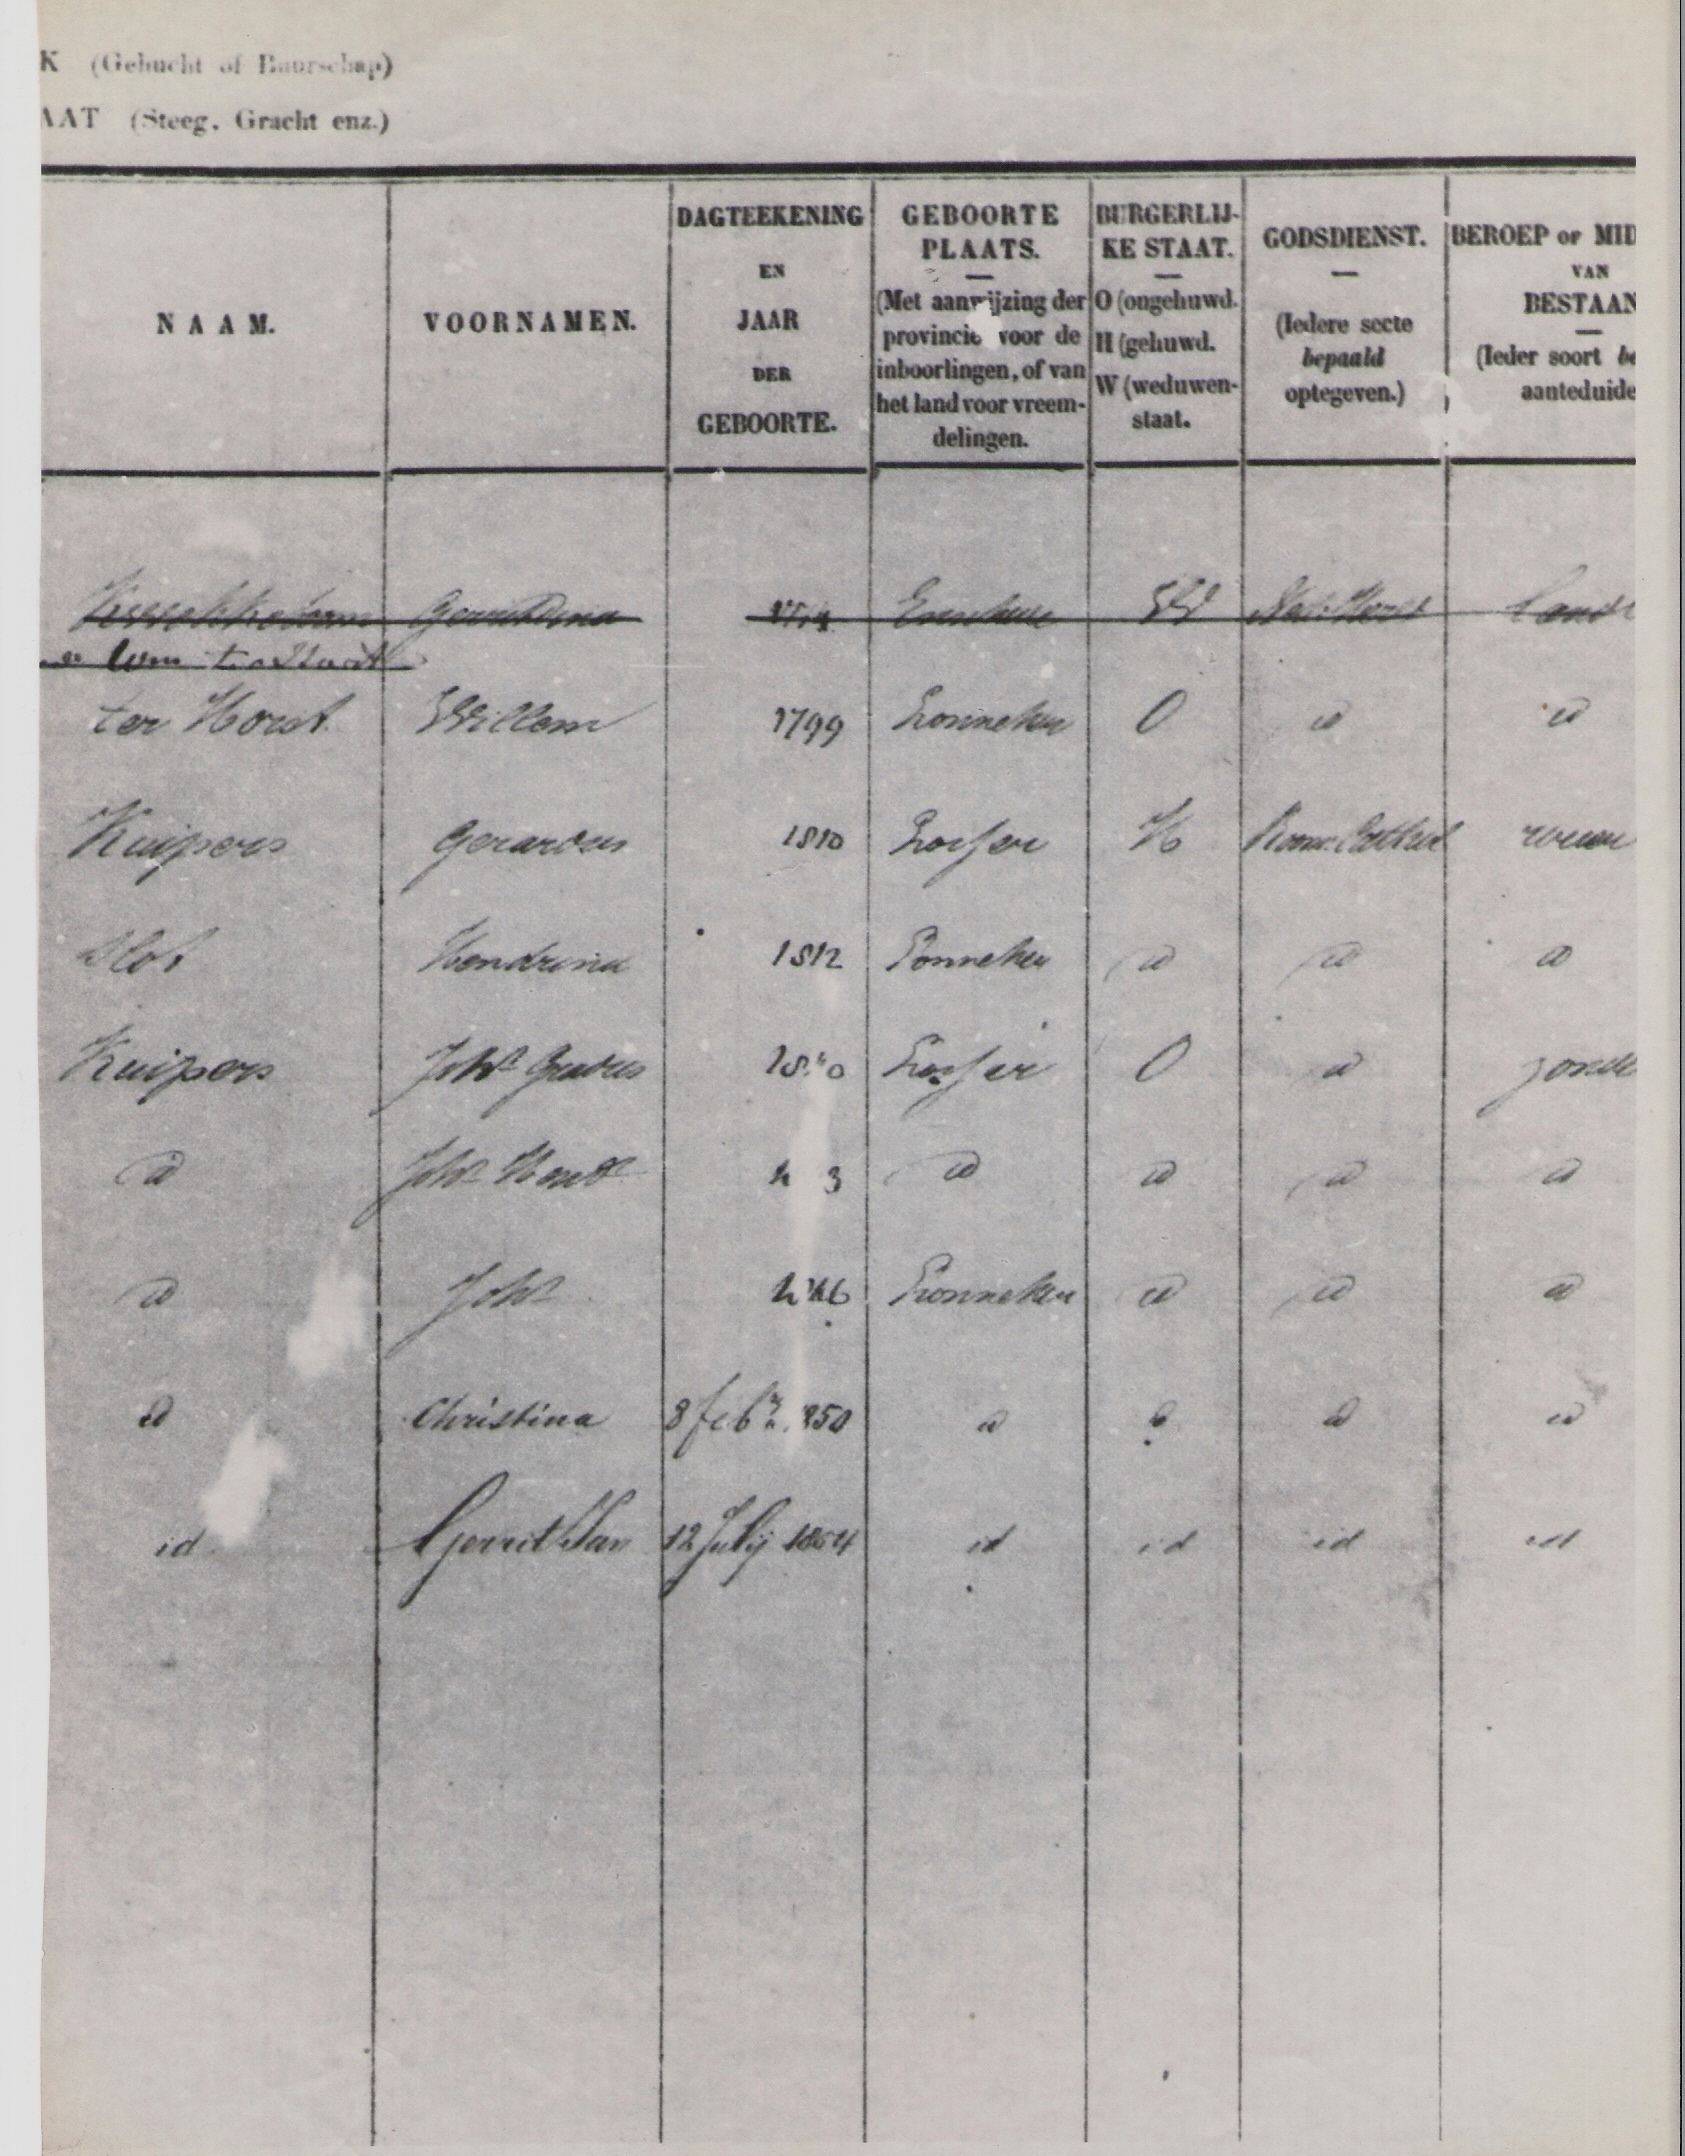 K (Gehucht of Buurschap)
AAT (Steeg, Gracht enz.)
NAAM. VOORNAMEN. DAGTEEKENING EN JAAR DER GEBOORTE. GEBOORTE PLAATS. (Met aanwijzing der provincie voor de inboorlingen, of van het land voor vreemdelingen. BURGERLIJKE STAAT. O (ongehuwd. H (gehuwd. W (weduwenstaat. GODSDIENST. (Iedere secte bepaald optegeven.) BEROEP of MID VAN BESTAAN (Ieder soort be aanteduide
Gerritdina Enschede W Ned. Herv. Land
ter Horst Willem 1799 Lonneker O id id
Kuipers Gerardus 1810 Losser H Room Cathol wever
Slot Hendrina 1812 Lonneker id id id
Kuipers Joh.s Gradus Losser O id zonder
id Joh.s id id id id
id Joh.s Lonneker id id id
id Christina 8 feb.r 1850 id id id id
id Gerrit Jan 12 July id id id id